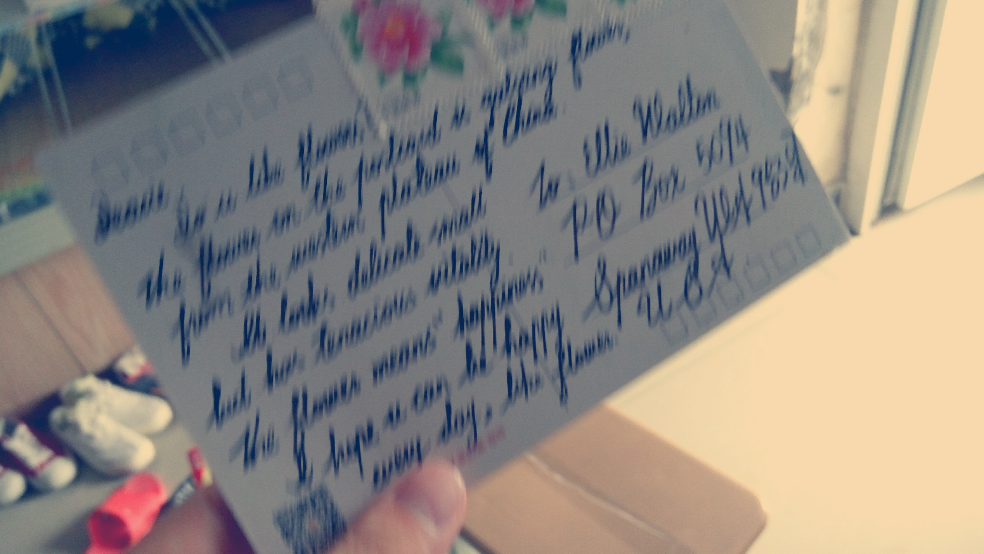 Do u like flower?
the flower in the postcard is gesang flower,
from the western plateau of China.
It looks delicate small
but has tenacious vitality.
the flower means "happiness"
I hope u can be happy
every day, like flower.
To. Ellie Walton
PO Box 5074
Spanaway
U.S.A